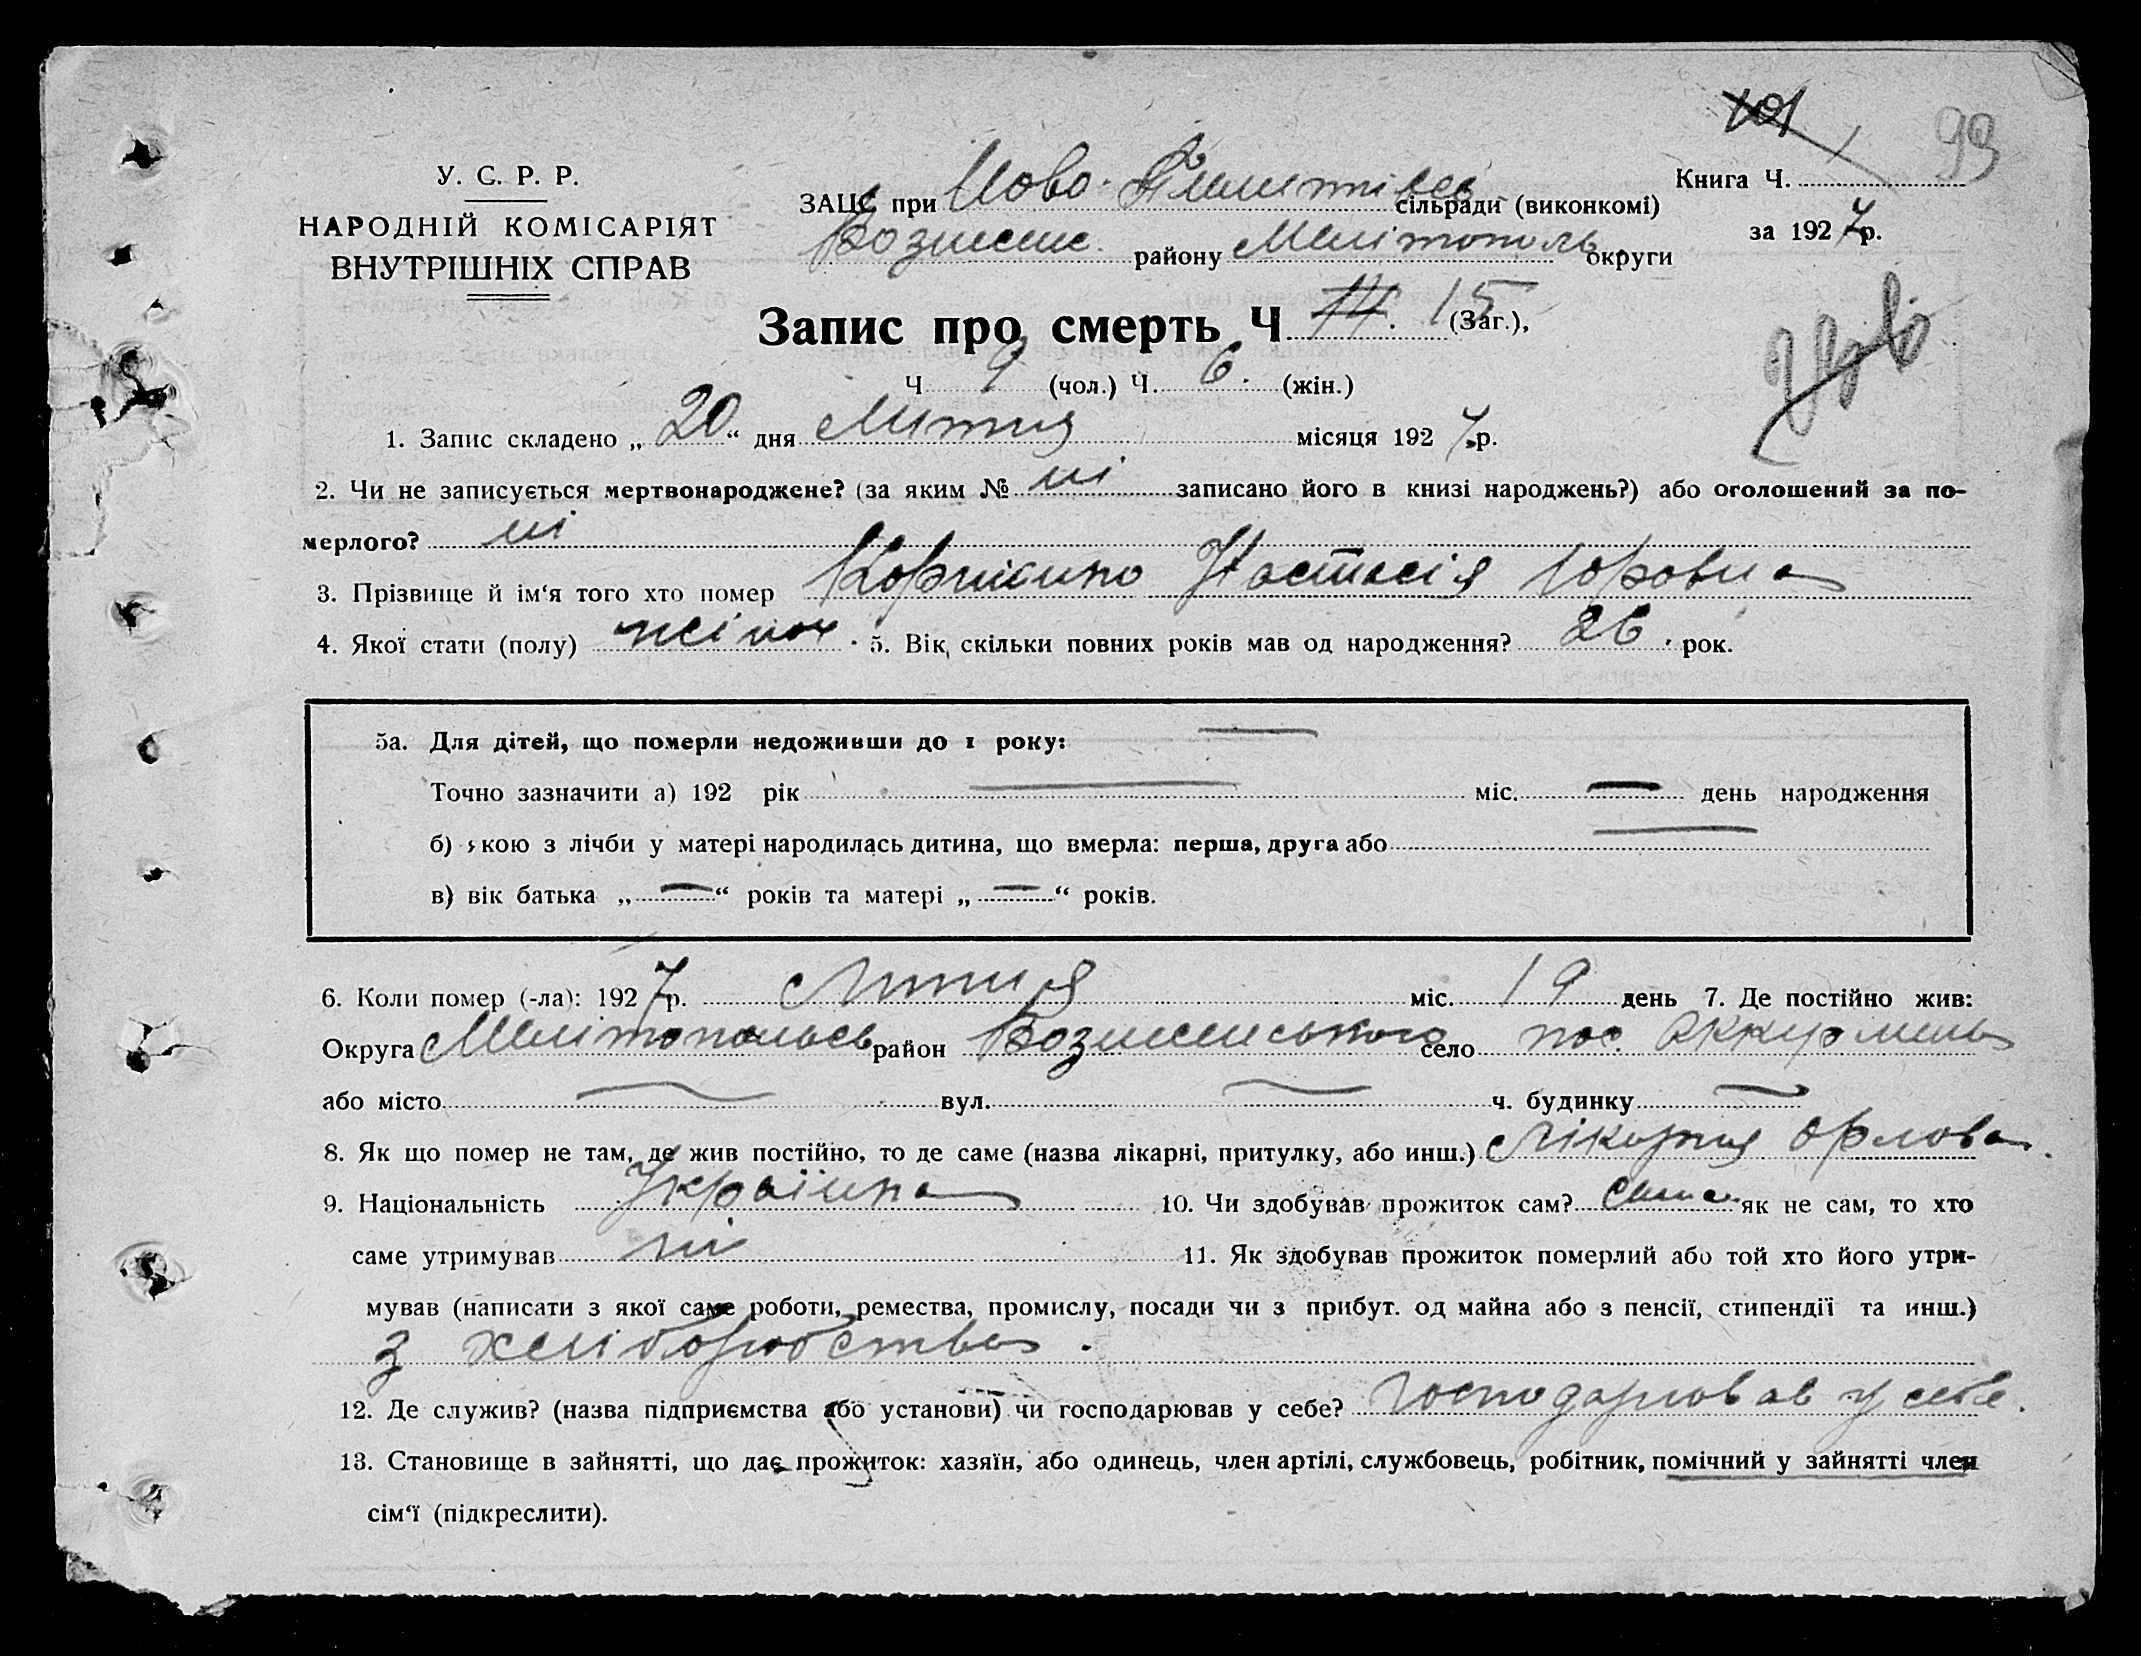 101 1 99
У. С. Р. Р.
НАРОДНІЙ КОМІСАРІЯТ
ВНУТРІШНІХ СПРАВ
ЗАЦС при Ново- сільради (виконкомі)
Вознесенс. району Мелітополь округи
Книга Ч.
за 1927 р.
Запис про смерть Ч 14. 15 (Заг.),
Ч 9 (чол.) Ч. 6. (жін.)
1. Запис складено „20“ дня Лютня місяця 1927 р.
2. Чи не записується мертвонароджене? (за яким № ні записано його в книзі народжень?) або оголошений за по-
мерлого? ні
3. Прізвище й ім‘я того хто помер Настасія Юровна
4. Якої стати (полу) жіноч. 5. Вік, скільки повних років мав од народження? 26. рок.
5а. Для дітей, що померли недоживши до 1 року: —
Точно зазначити а) 192 рік — міс. — день народження
б) якою з лічби у матері народилась дитина, що вмерла: перша, друга або —
в) вік батька „—“ років та матері „—“ років.
6. Коли помер (-ла): 1927 р. Лютня міс. 19 день 7. Де постійно жив:
Округа Мелітопольсь район Вознесенського село пос. Аккермень
або місто — вул. — ч. будинку —
8. Як що помер не там, де жив постійно, то де саме (назва лікарні, притулку, або инш.) Лікарня Орлова.
9. Національність Українка 10. Чи здобував прожиток сам? сама як не сам, то хто
саме утримував ні 11. Як здобував прожиток померлий або той хто його утри-
мував (написати з якої саме роботи, ремества, промислу, посади чи з прибут. од майна або з пенсії, стипендії та инш.)
з хліборобства.
12. Де служив? (назва підприємства або установи) чи господарював у себе? господарював у себе.
13. Становище в зайнятті, що дає прожиток: хазяїн, або одинець, член артілі, службовець, робітник, помічний у зайнятті член
сім‘ї (підкреслити).